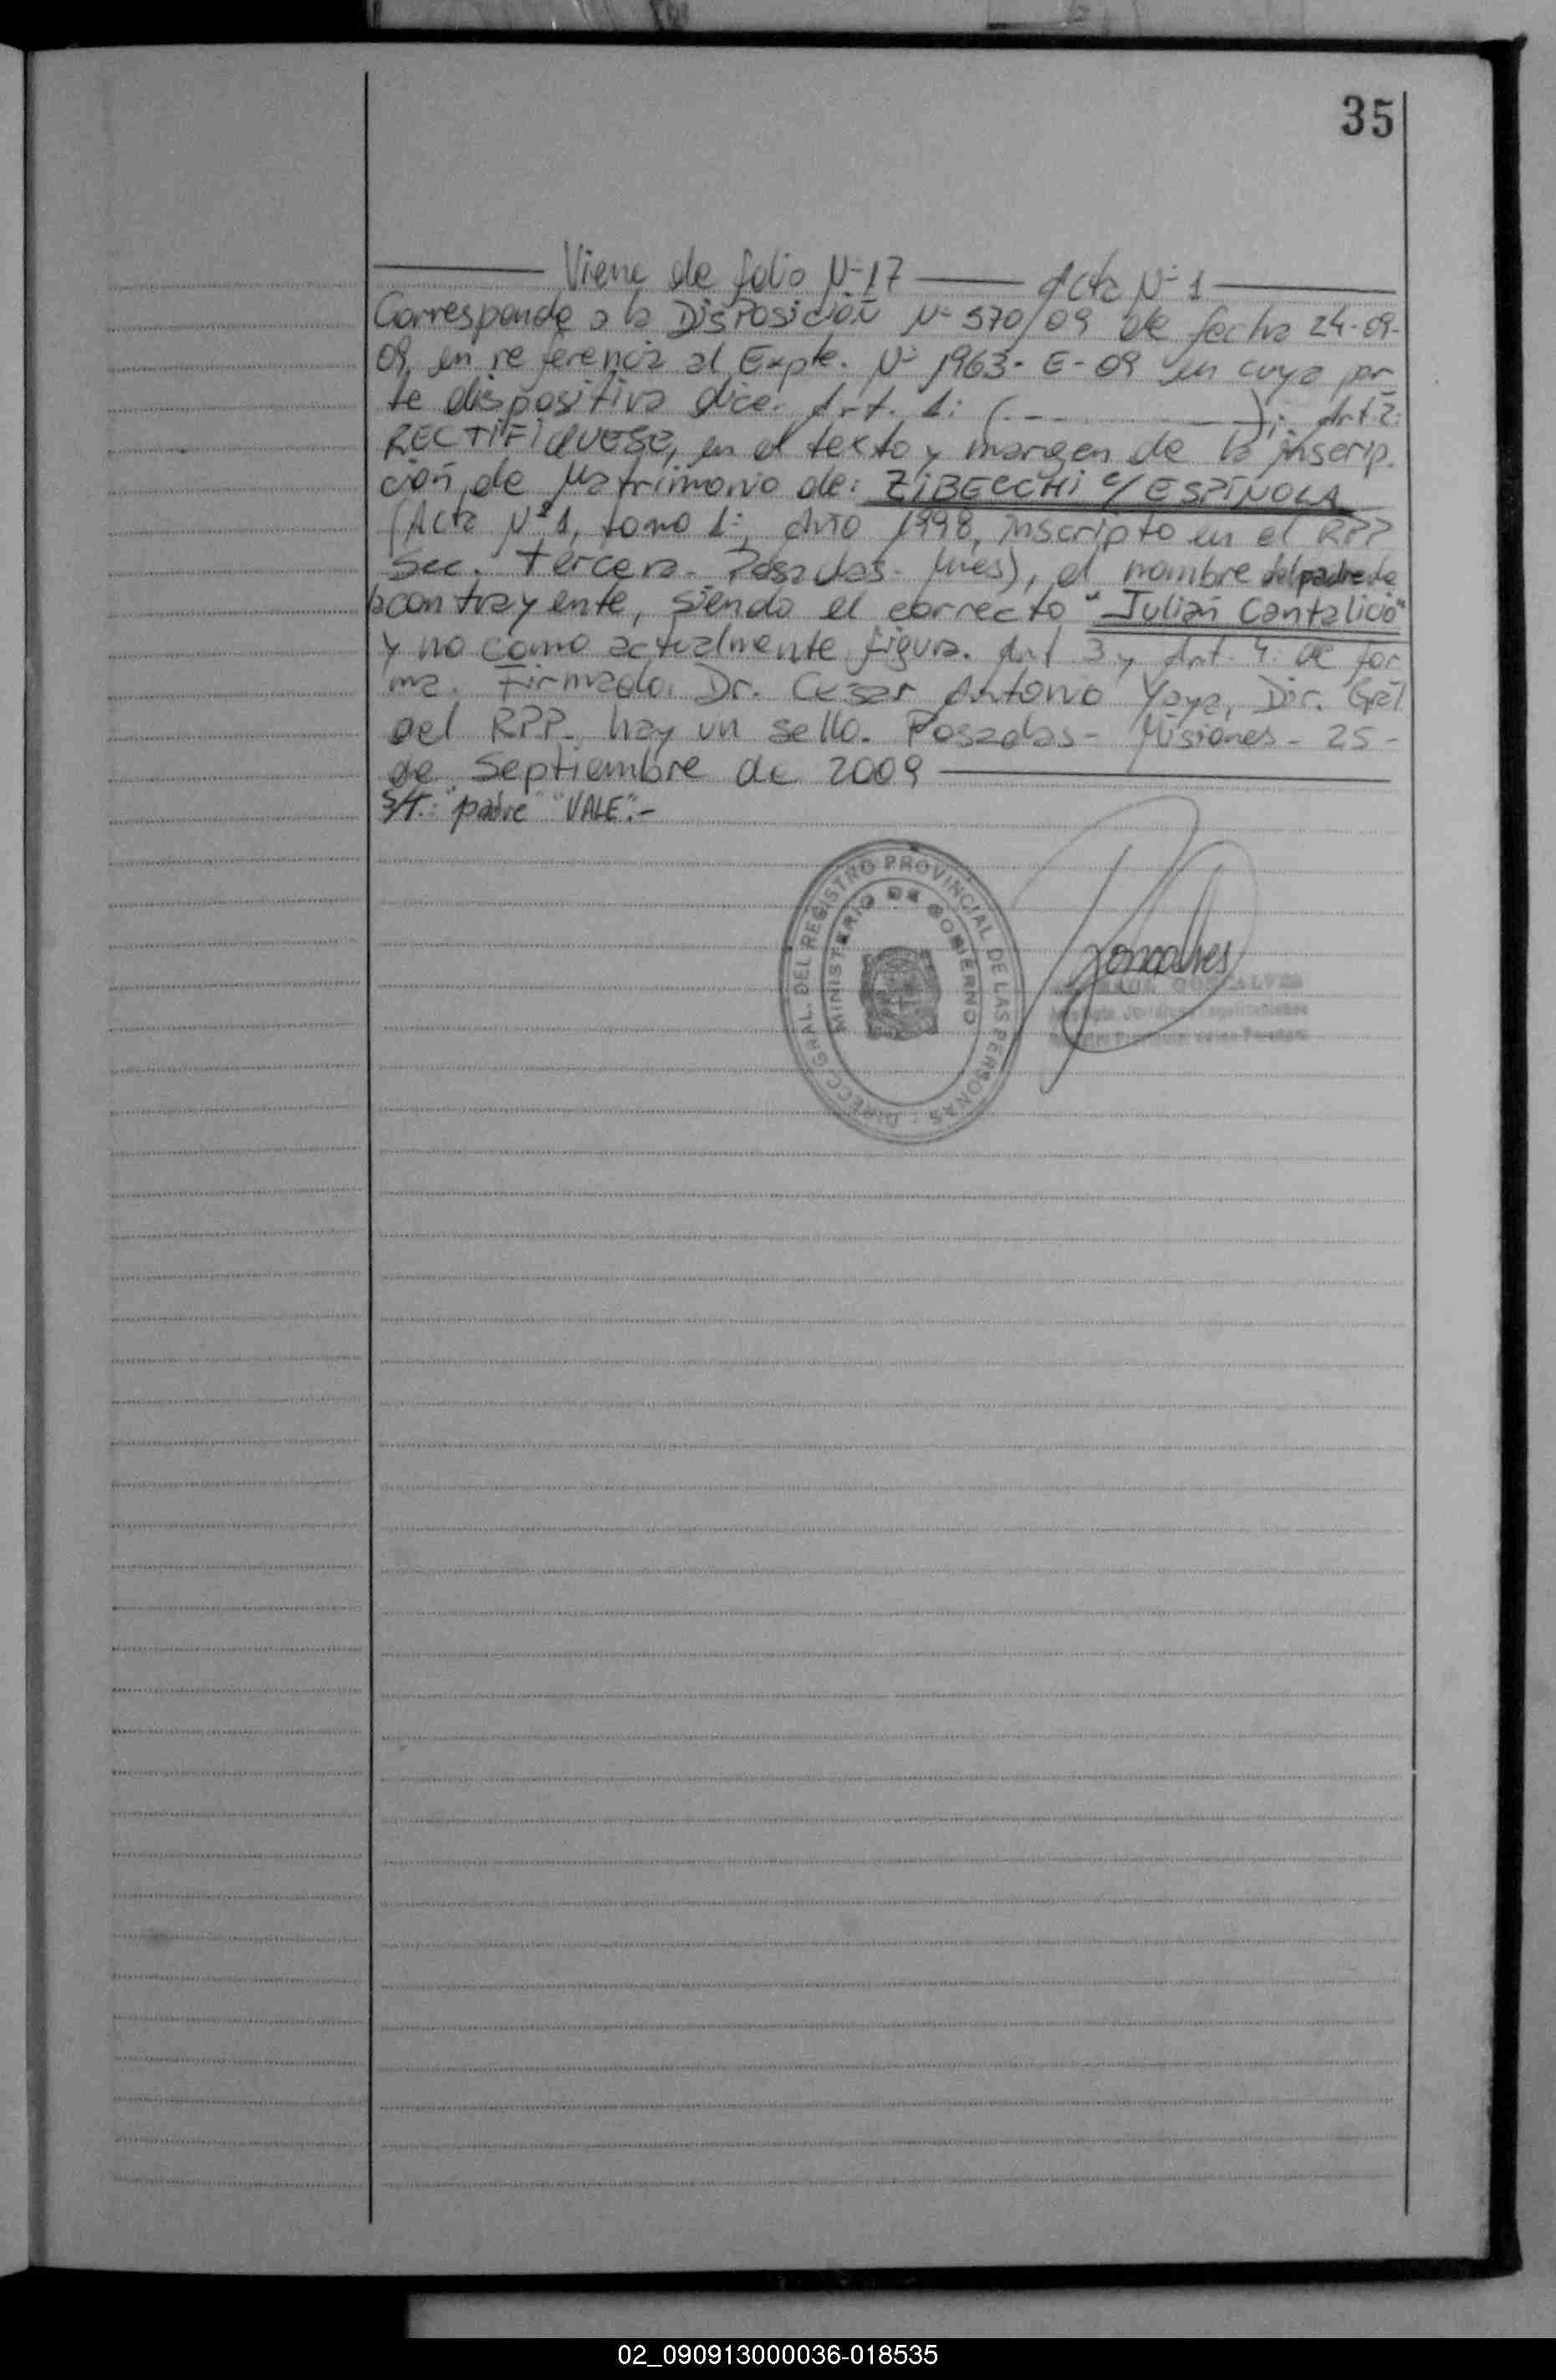 35
Viene de folio N° 17 Acta N° 1
Corresponde a la DisPosición N° 570/09 de fecha 24-09-
09, en referencia al Expte. N° 1963-E-09 en cuya par
te dispositiva dice: Art. 1: (- - - ); Art. 2:
RECTIFIQUESE, en el texto y margen de la inscrip.
ción de Matrimonio de: ZIBECCHI c/ ESPÍNOLA
(Acta N° 1, tomo 1°, Año 1998, inscripto en el RPP
Sec. Tercera - Posadas - Mnes), el nombre del padre de
la contrayente, siendo el correcto "Julián Cantalicio"
y no como actualmente figura. Art. 3 y Art. 4: de for
ma. Firmado. Dr. Cesar Antonio Yaya, Dir. Gral
del RPP. hay un sello. Posadas - Misiones - 25 -
de Septiembre de 2009
S/T.: "padre" "VALE".-
DIRECC. GRAL. DEL REGISTRO PROVINCIAL DE LAS PERSONAS
MINISTERIO DE GOBIERNO
Goncalves
GONCALVES
02_090913000036-018535